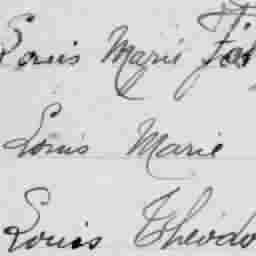 Louis Marie
Louis Marie
Louis Theodo